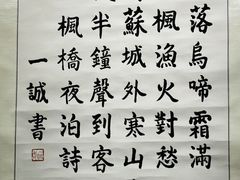 落烏啼霜滿
楓漁火對愁
蘇城外寒山
半鐘聲到客
楓橋夜泊詩
一誠書